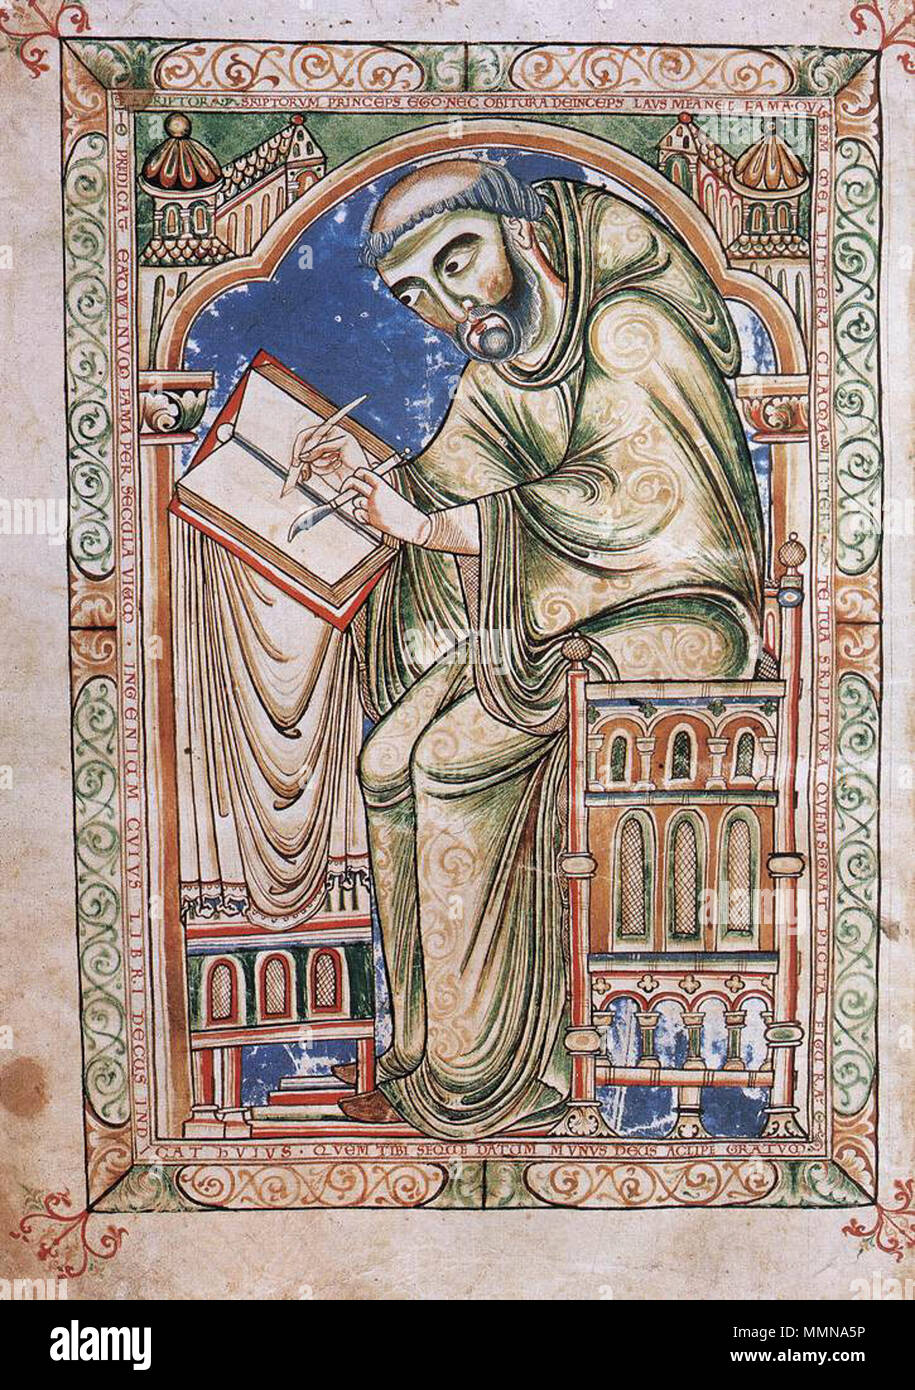 SCRIPTORVM PRINCEPS EGO·NEC OBITVRA DEINCEPS LAVS MEA NEC FAMA·QVI
S SIM MEA LITTERA CLAMA TE TVA SCRIPTVRA QVEM SIGNAT PICTA FIGVRA
PREDICAT EADWINVM FAMA PER SECVLA VIVVM · INGENIVM CVIVS LIBRI DECVS IND
CAT HVIVS · QVEM TIBI SEQVE DATVM MVNVS DEVS ACCIPE GRATVM
alamy
Image ID: MMNA5P
www.alamy.com